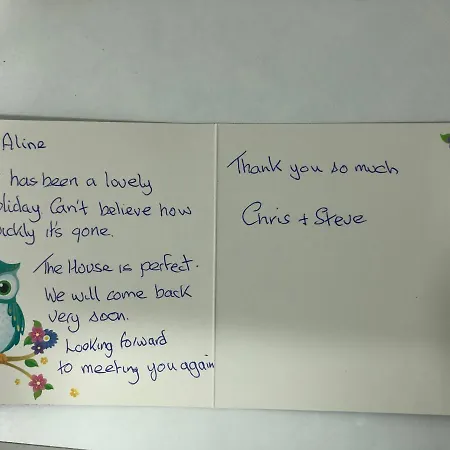 Aline
has been a lovely
oliday Can't believe how
uickly it's gone.
The House is perfect.
We will come back
very soon.
Looking forward
to meeting you again
Thank you so much
Chris + Steve